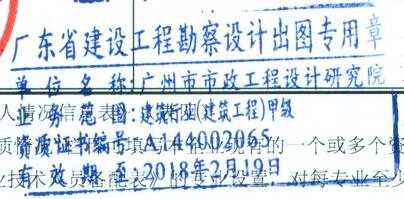 广东省建设工程勘察设计出图专用章
单位名称:广州市市政工程设计研究院
人情况信息表
业务范围:建筑行业(建筑工程)甲级
资质证书编号:A144002065
填写本企业现有的一个或多个资
有效期至2018年2月19日
业技术人员各配表》的专业设置,对每专业至少